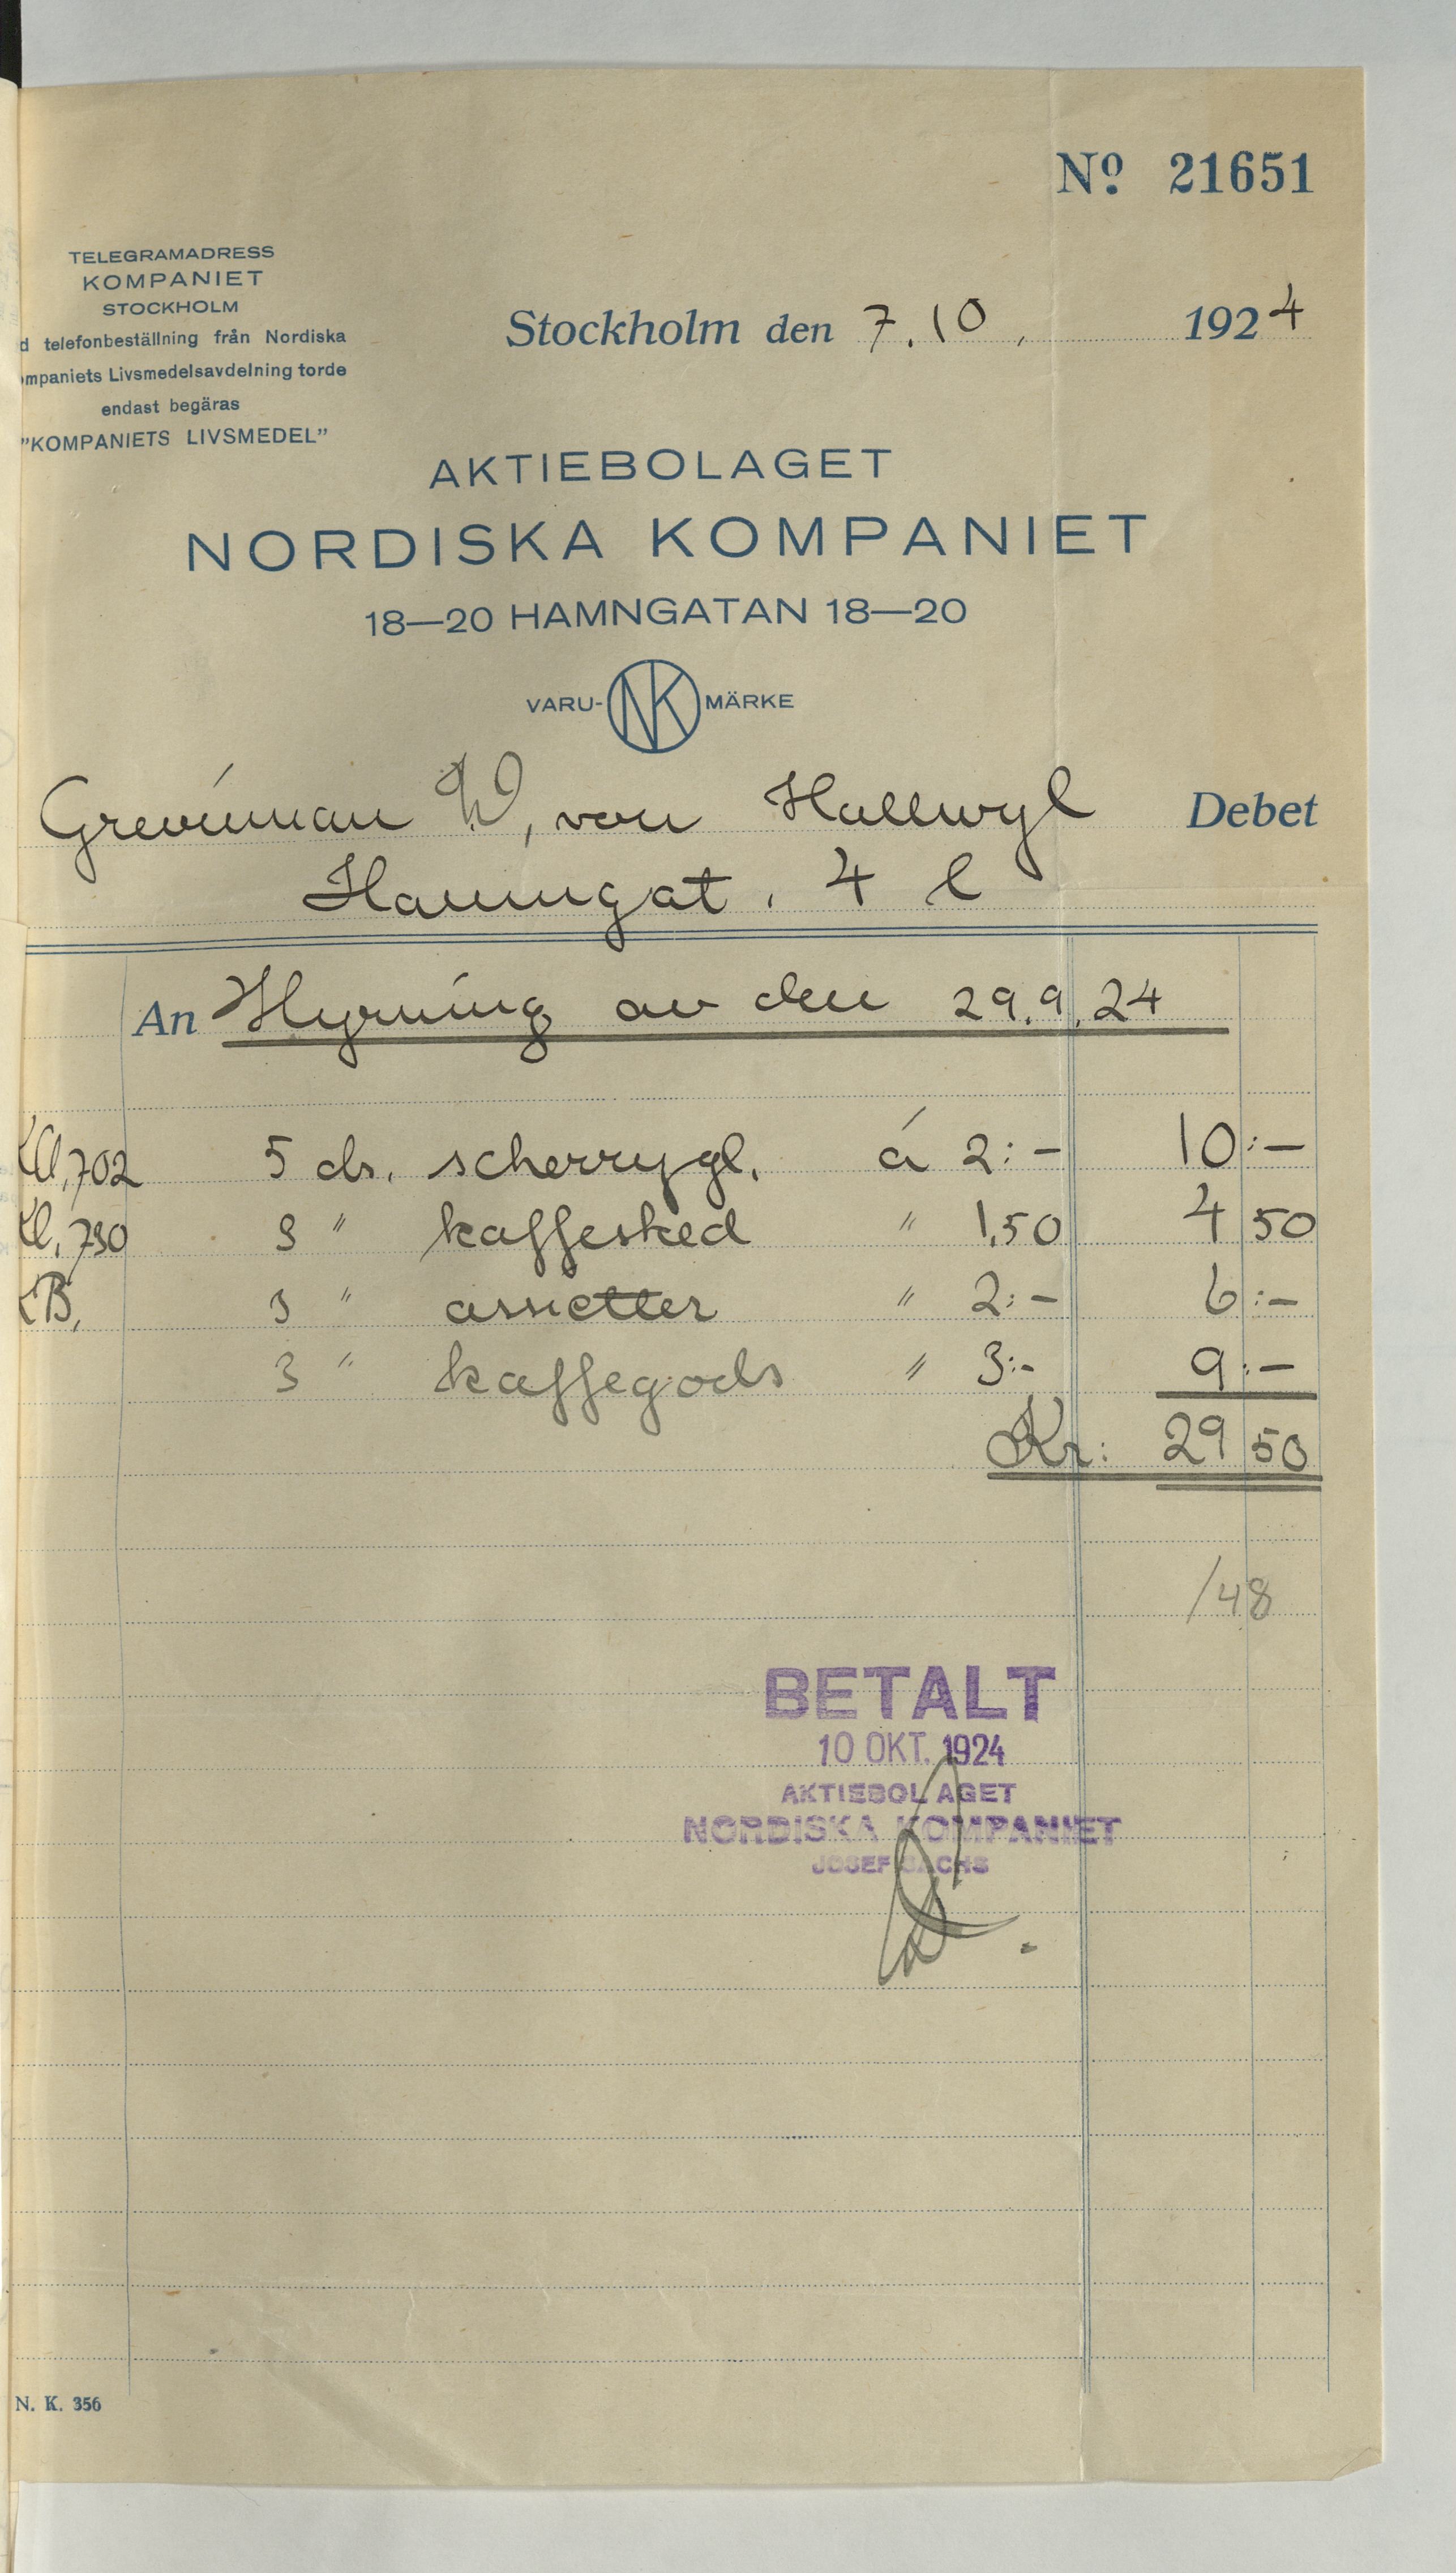 Nº 21651
TELEGRAMADRESS
KOMPANIET
STOCKHOLM
d telefonbeställning från Nordiska
ompaniets Livsmedelsavdelning torde
endast begäras
"KOMPANIETS LIVSMEDEL"
Stockholm den 7.10. 1924
AKTIEBOLAGET
NORDISKA KOMPANIET
18—20 HAMNGATAN 18—20
VARU- NK MÄRKE
Grevinnan W, von Hallwyl Debet
Hamngat. 4 
An Hyrning av den 29.9.24
702 5 ds. scherrygl. á 2:- 10:-
790 3 " kaffesked " 1.50 4 50
KB. 3 " assietter " 2:- 6:-
3 " kaffegods " 3:- 9:-
Kr: 29 50
/48
BETALT
10 OKT. 1924
AKTIEBOLAGET
NORDISKA KOMPANIET
JOSEF SACHS
N. K. 356